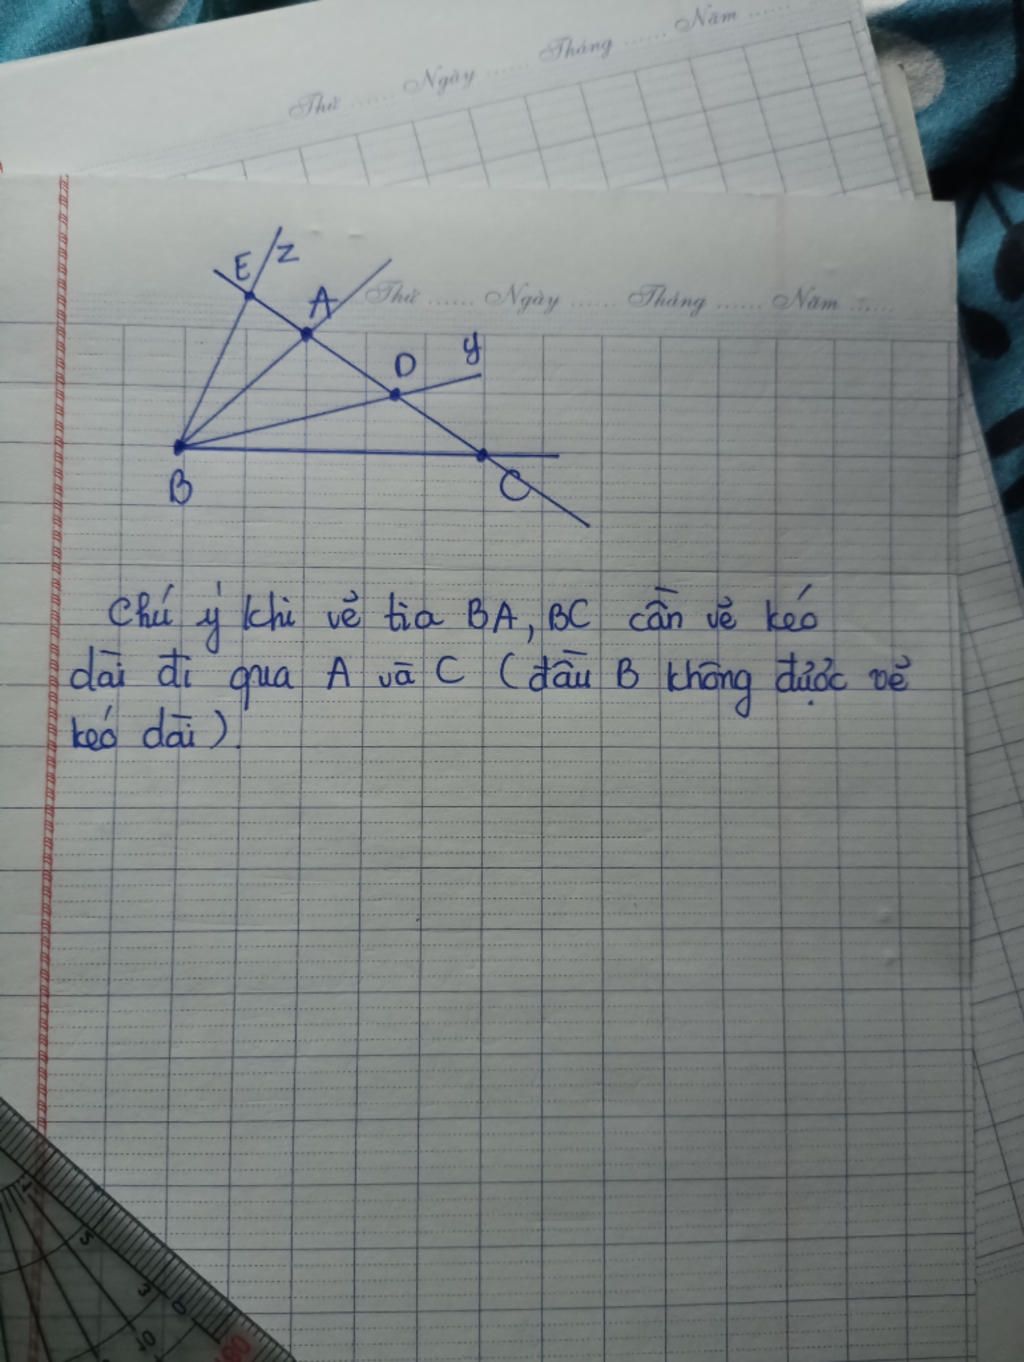 Thứ ...... Ngày ...... Tháng ...... Năm ......
E z
A
Thứ ...... Ngày ...... Tháng ...... Năm ......
D y
B
C
Chú ý khi vẽ tia BA, BC cần vẽ kéo
dài đi qua A và C (đầu B không được vẽ
kéo dài).
5
3
0